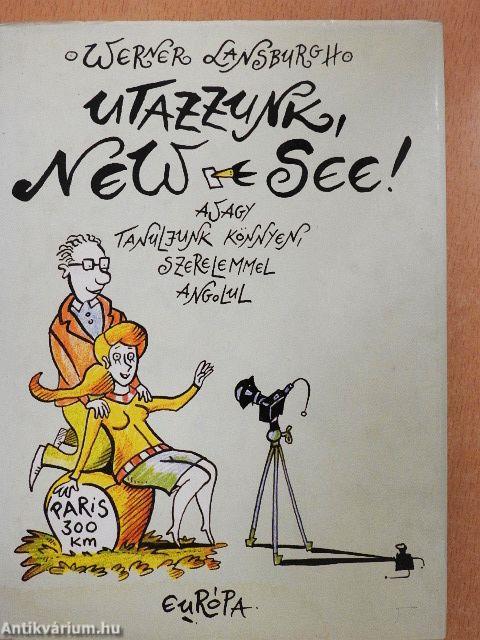 WERNER LANSBURGH
UTAZZUNK,
NEW-SEE!
AVAGY
TANULJUNK KÖNNYEN,
SZERELEMMEL
ANGOLUL
PÁRIS
300
KM
EURÓPA
Antikvárium.hu